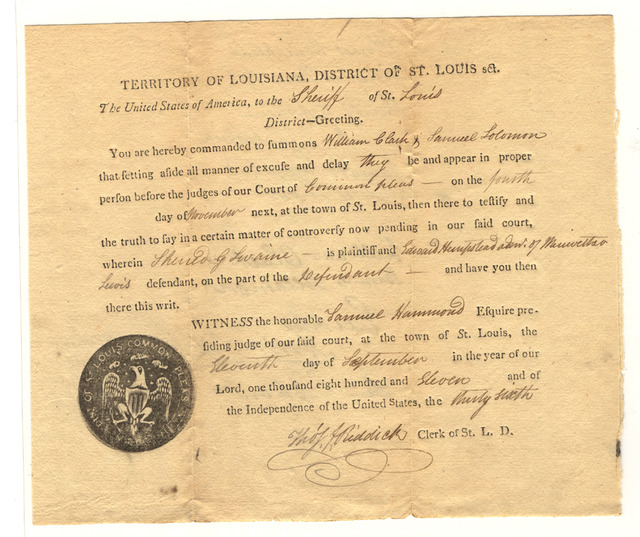 TERRITORY OF LOUISIANA, DISTRICT OF ST. LOUIS sct.
The United States of America, to the Sheriff of St. Louis
District—Greeting.
You are hereby commanded to summons William Clark & Samuel Solomon
that setting aside all manner of excuse and delay they be and appear in proper
person before the judges of our Court of Common pleas — on the fourth
day of November next, at the town of St. Louis, then there to testify and
the truth to say in a certain matter of controversy now pending in our said court,
wherein Swaine — is plaintiff and Edward Hempstead adm. of
Lewis defendant, on the part of the Defendant — and have you then
there this writ.
WITNESS the honorable Samuel Hammond Esquire pre-
siding judge of our said court, at the town of St. Louis, the
Eleventh day of September in the year of our
Lord, one thousand eight hundred and Eleven and of
the Independence of the United States, the thirty sixth
Thos. F. Riddick Clerk of St. L. D.
ST LOUIS COMMON PLEAS